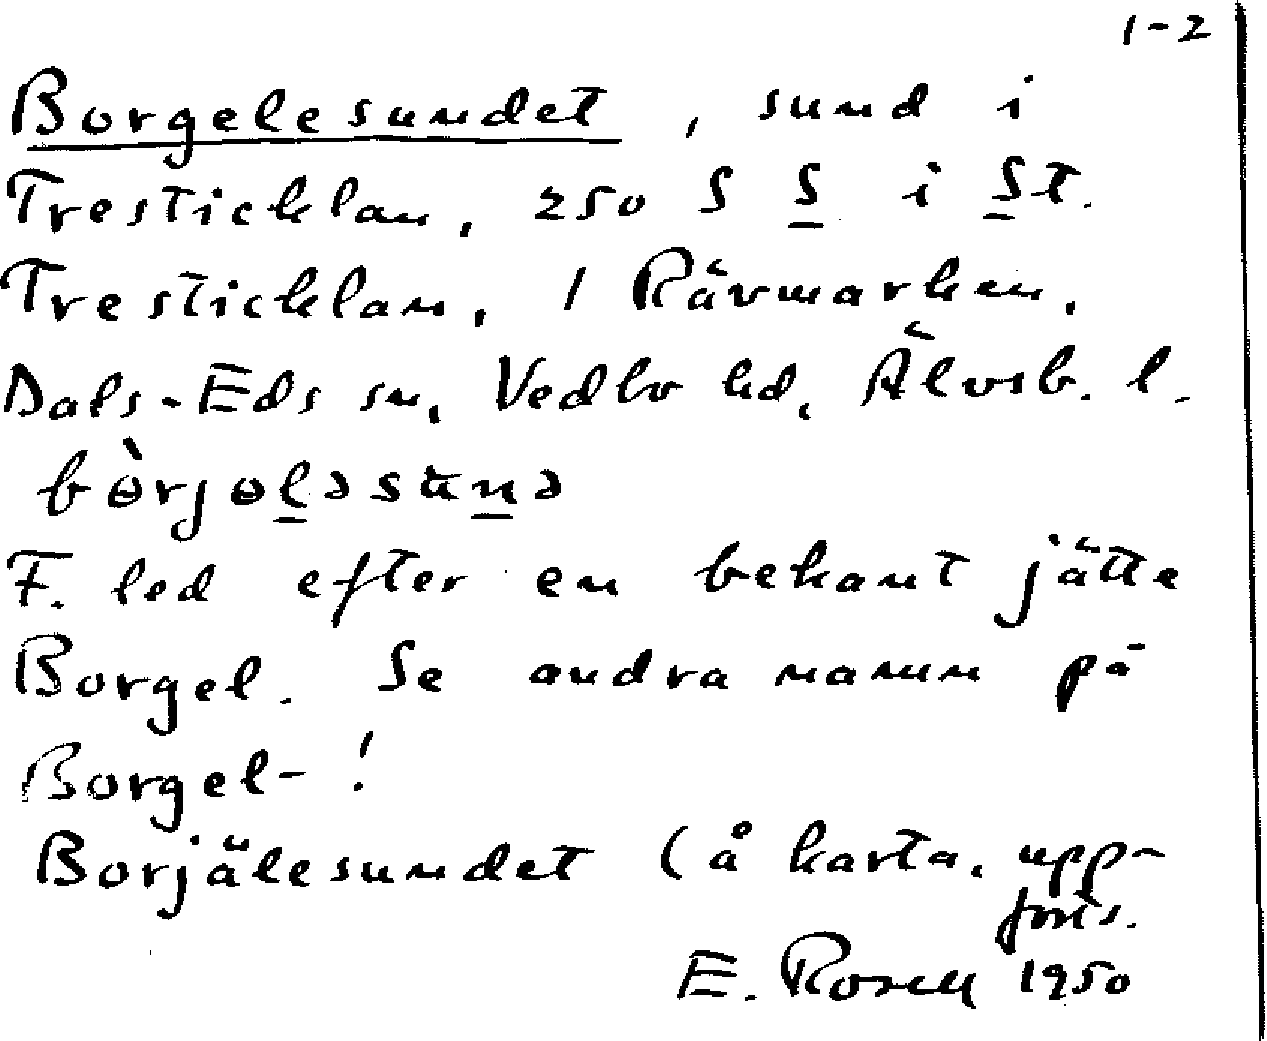 1-2
Borgelesundet, sund i
Tresticklan, 250 S S i St.
Tresticklan, 1 Rävmarken,
Dals-Eds sn, Vedbo hd, Älvsb. l.
bɵ̀rjɵləsunə
F. led efter en bekant jätte
Borgel. Se andra namn på
Borgel- !
Borjälesundet (å karta, upp-
E. Rosell 1950